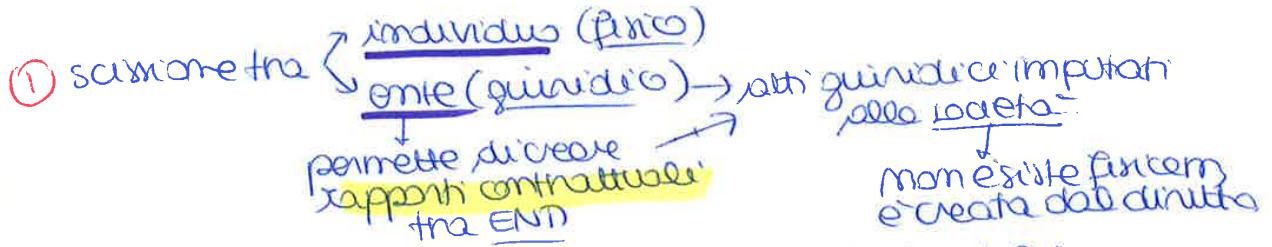 individuo (fisico)
① scissione tra
ente (giuridico) → atti giuridici imputati
alla società
permette di creare
rapporti contrattuali
tra ENTI
non esiste ficicam
è creata dal diritto